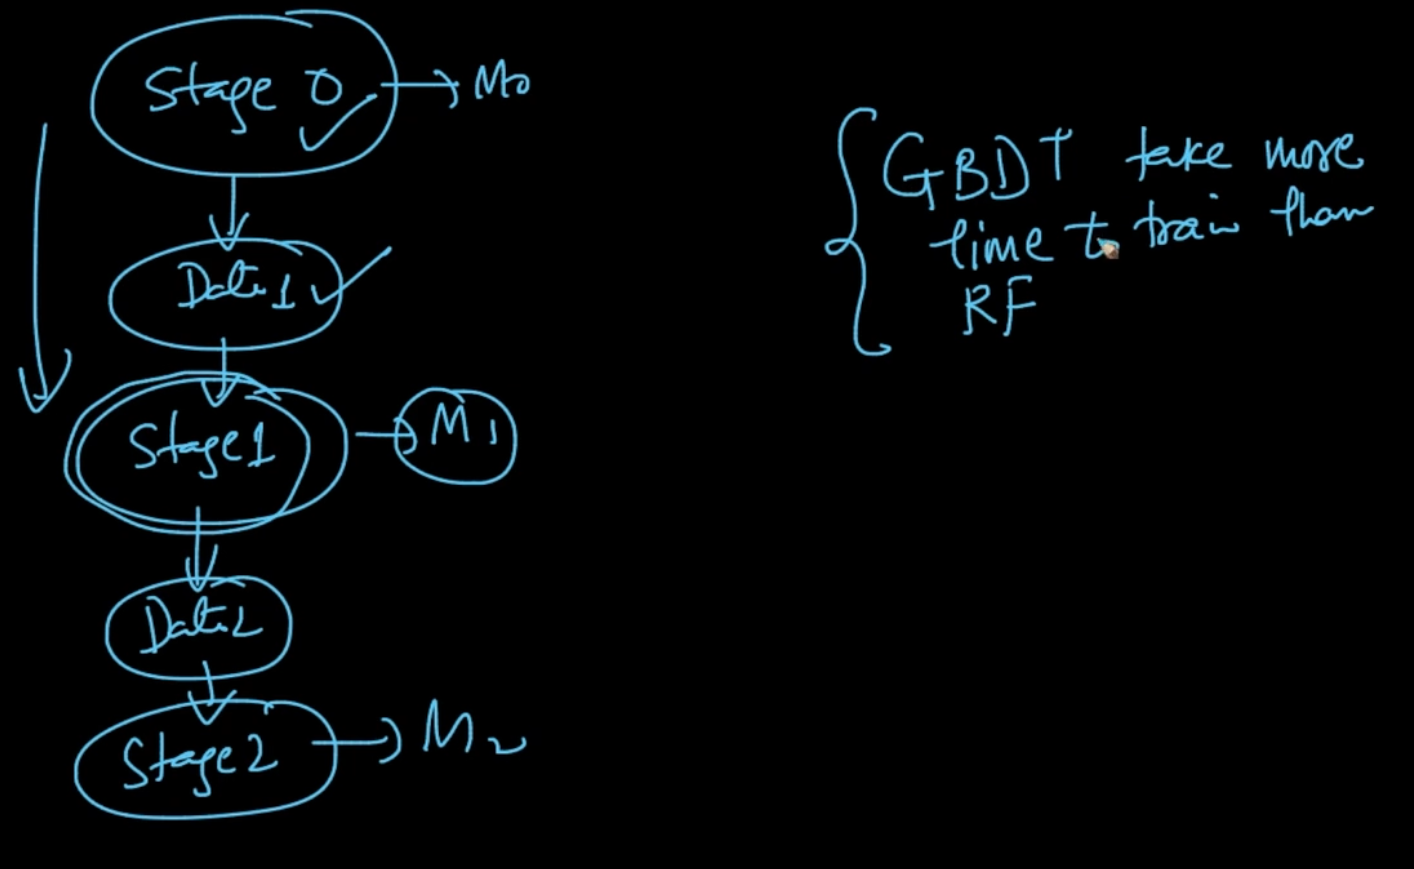 Stage 0 → M0
Data 1
Stage 1 → M1
Data 2
Stage 2 → M2
GBDT take more
time to train than
RF